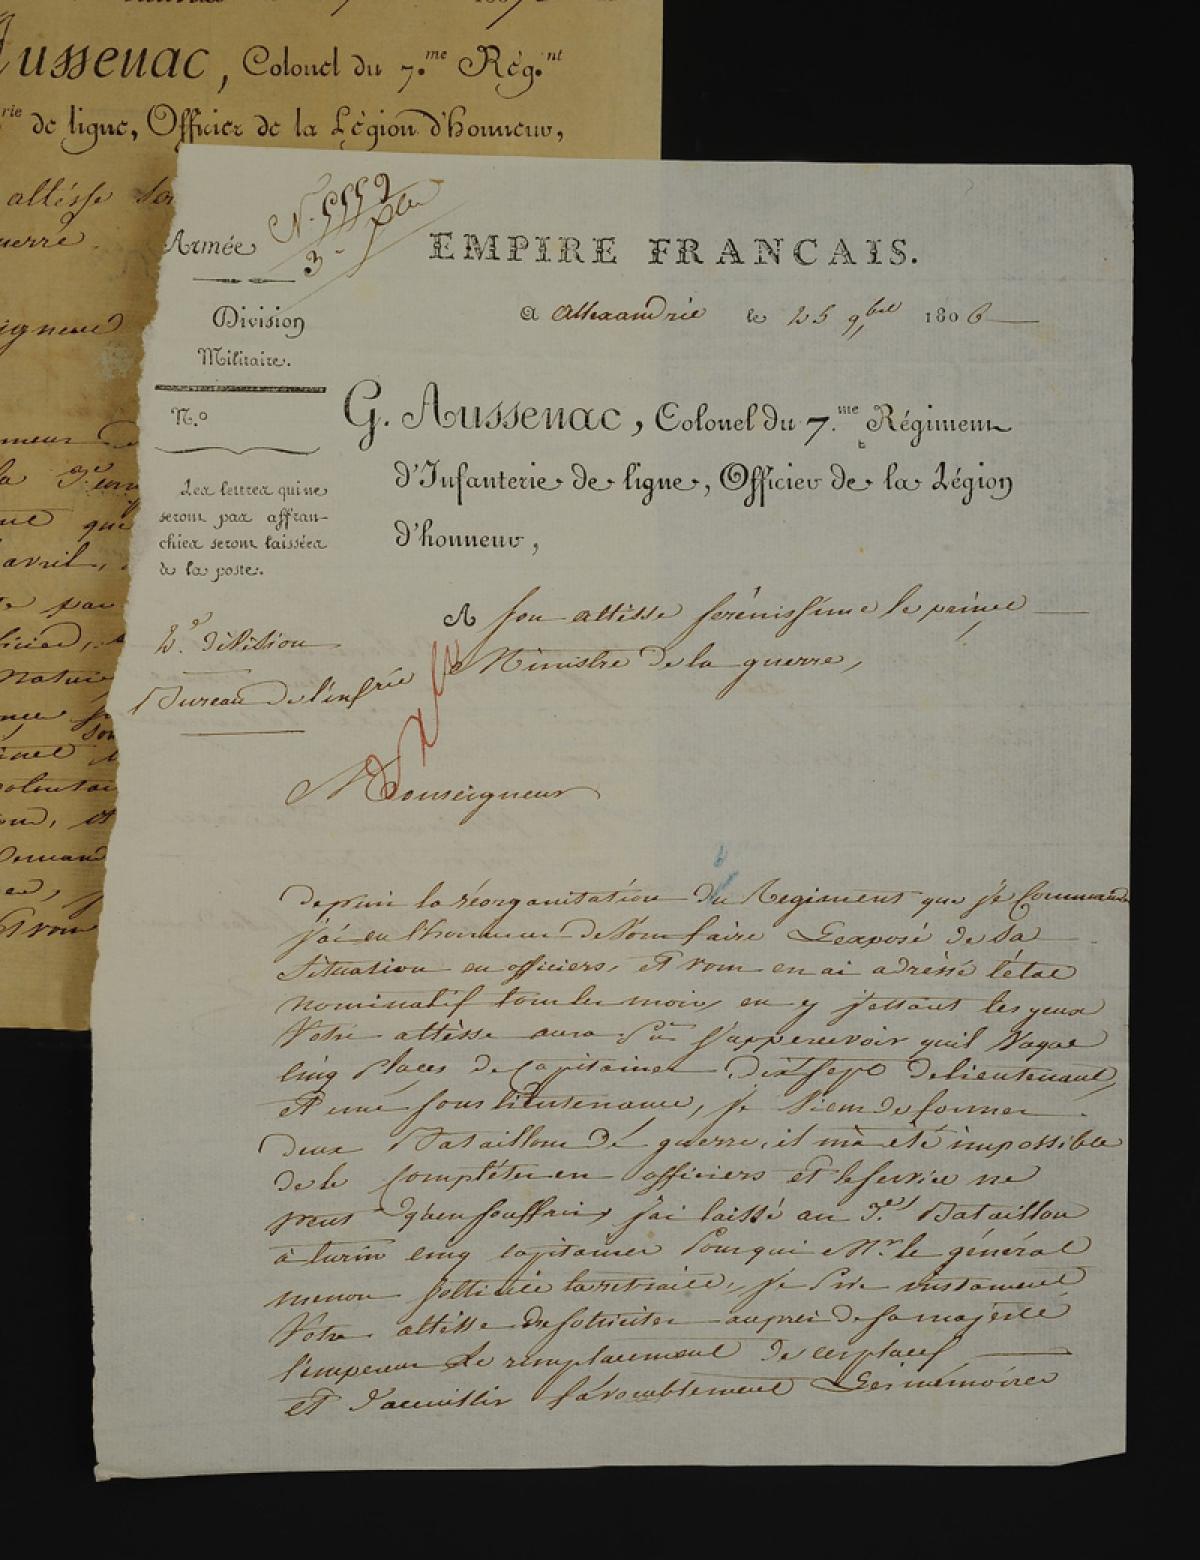 Aussenac, Colonel du 7.me Rég.nt
rie de ligne, Officier de la Légion d'honneur,
altésse
uerre
igneur
avril,
par
Armée
N. 5552
3
EMPIRE FRANCAIS.
Division
Militaire.
A allexandrie le 25 9bre 1806
N.o
G. Aussenac, Colonel du 7.me Régiment
d'Infanterie de ligne, Officier de la Légion
d'honneur,
Les lettres qui ne
seront pas affran-
chies seront laissées
à la poste.
A son altèsse serénissime le prince
Ministre de la guerre,
2.e division
Bureau de l'infrie
Monseigneur
depuis la réorganisation du Regiment que je Commande
j'ai eu l'honneur de vous faire L'exposé de sa
situation en officiers, et vous en ai adrèssé l'état
nominatif tous les mois, en y jettant les yeux
Votre altèsse aura pu s'appercevoir quil Vaque
Cinq places de Capitaines dix sept de lieutenant,
et une sous lieutenance, je viens de former
deux Bataillons de guerre, il m'a été impossible
de le complèter en officiers et le service ne
peut qu'en souffrir, j'ai laissé au 3.e Bataillon
à turin cinq capitaines pour qui Mr. le général
menou sollicite la retraite, je prie instament
Votre altèsse de soliciter auprès de sa majesté
l'empereur le remplacement de ces places
et d'accuillir favorablement Les mémoires